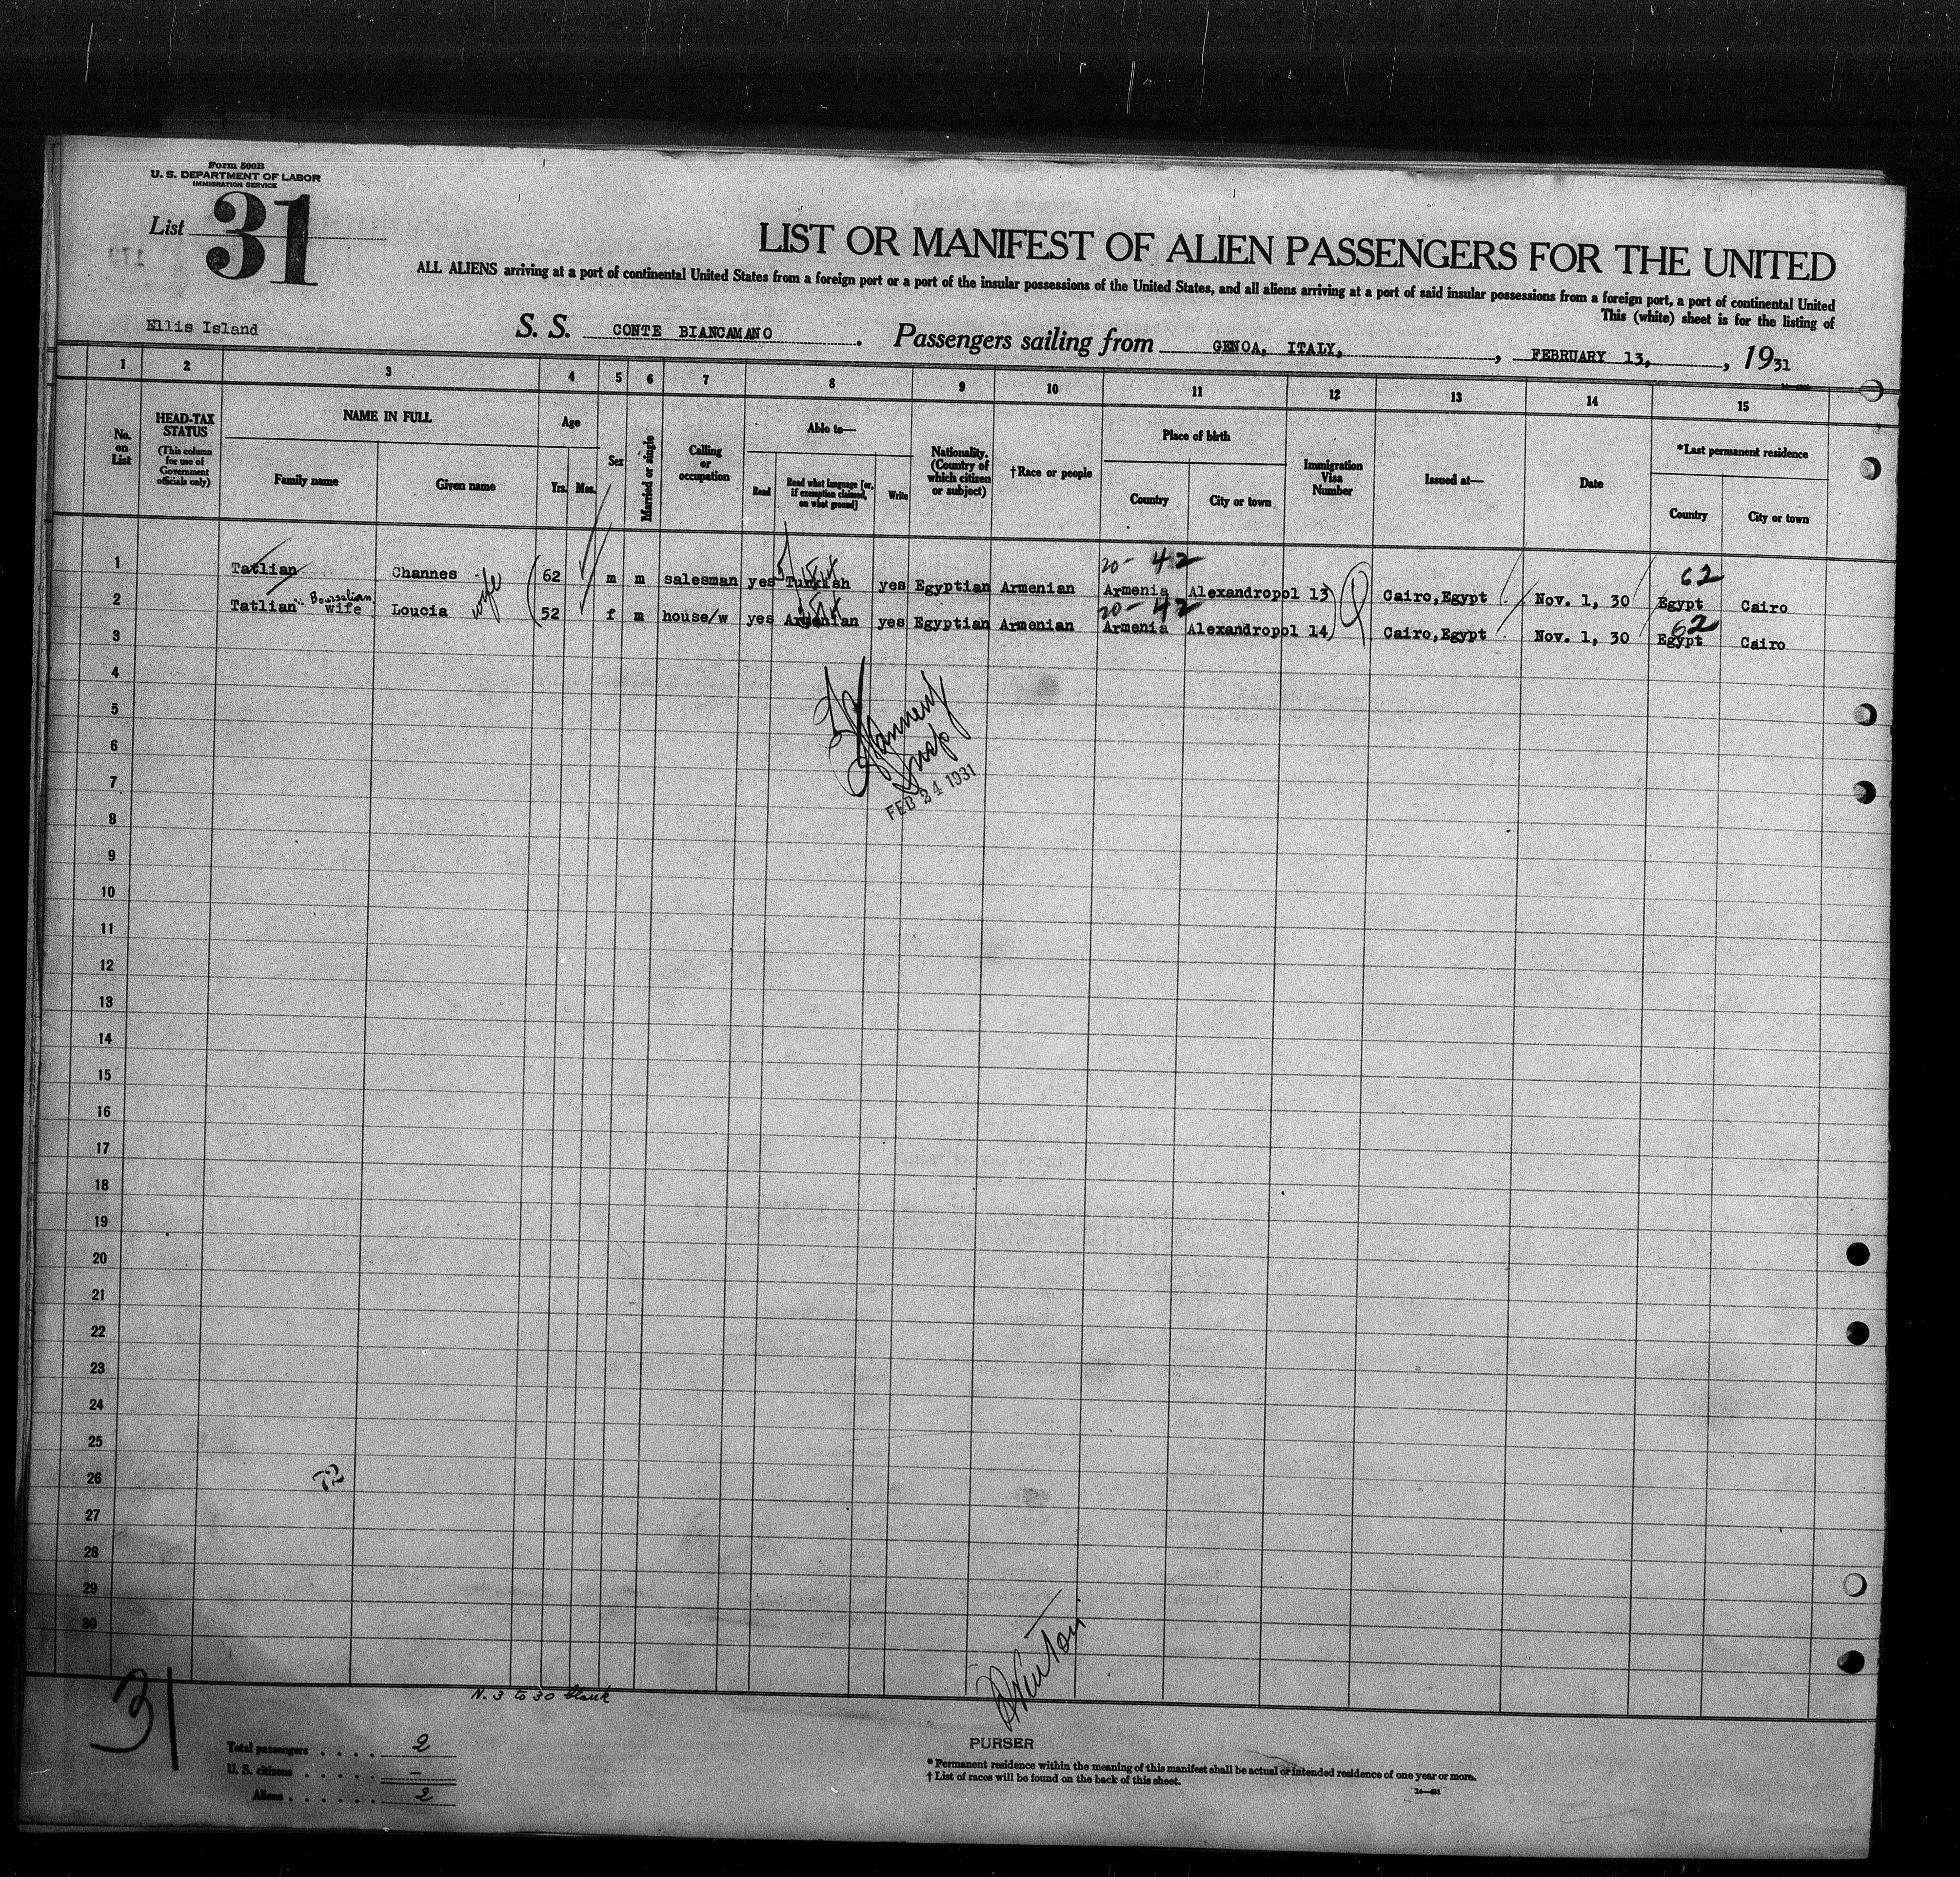 Form 500B
U. S. DEPARTMENT OF LABOR
IMMIGRATION SERVICE
List 31
LIST OR MANIFEST OF ALIEN PASSENGERS FOR THE UNITED
ALL ALIENS arriving at a port of continental United States from a foreign port or a port of the insular possessions of the United States, and all aliens arriving at a port of said insular possessions from a foreign port, a port of continental United
This (white) sheet is for the listing of
Ellis Island
S. S. CONTE BIANCAMANO. Passengers sailing from GENOA, ITALY, , FEBRUARY 13, , 1931
1 2 3 4 5 6 7 8 9 10 11 12 13 14 15
No. on List
HEAD-TAX STATUS (This column for use of Government officials only)
NAME IN FULL
Family name Given name
Age
Yrs. Mos.
Sex
Married or single
Calling or occupation
Able to—
Read Read what language [or, if exemption claimed, on what ground] Write
Nationality. (Country of which citizen or subject)
†Race or people
Place of birth
Country City or town
Immigration Visa Number
Issued at—
Date
*Last permanent residence
Country City or town
20- 42 62
1 Tatlian Channes 62 m m salesman yes Turkish yes Egyptian Armenian Armenia Alexandropol 13 Cairo,Egypt Nov. 1, 30 Egypt Cairo
Boursalian wife 20- 42 62
2 Tatlian wife Loucia 52 f m house/w yes Armenian yes Egyptian Armenian Armenia Alexandropol 14 Cairo,Egypt Nov. 1, 30 Egypt Cairo
3
4
5
6
7
Insp
FEB 24 1931
8
9
10
11
12
13
14
15
16
17
18
19
20
21
22
23
24
25
26
27
28
29
30
31
N. 3 to 30 blank
Total passengers . . . . 2
U. S. citizens . . . . . –
Aliens . . . . . . 2
PURSER
* Permanent residence within the meaning of this manifest shall be actual or intended residence of one year or more.
† List of races will be found on the back of this sheet.